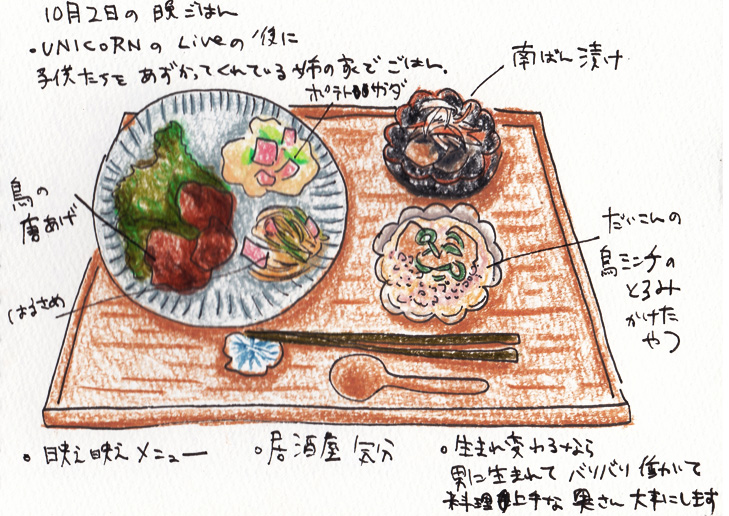 10月2日の晩ごはん
・UNICORNのLiveの後に
子供たちを あずかってくれている姉の家でごはん。
ポテトサラダ
南ばん漬け
鳥の
唐あげ
はるさめ
だいこんの
鳥ミンチの
とろみ
かけた
やつ
。映え映えメニュー
。居酒屋気分
。生まれ変わるなら
男に生まれて バリバリ働いて
料理上手な 奥さん 大事にします